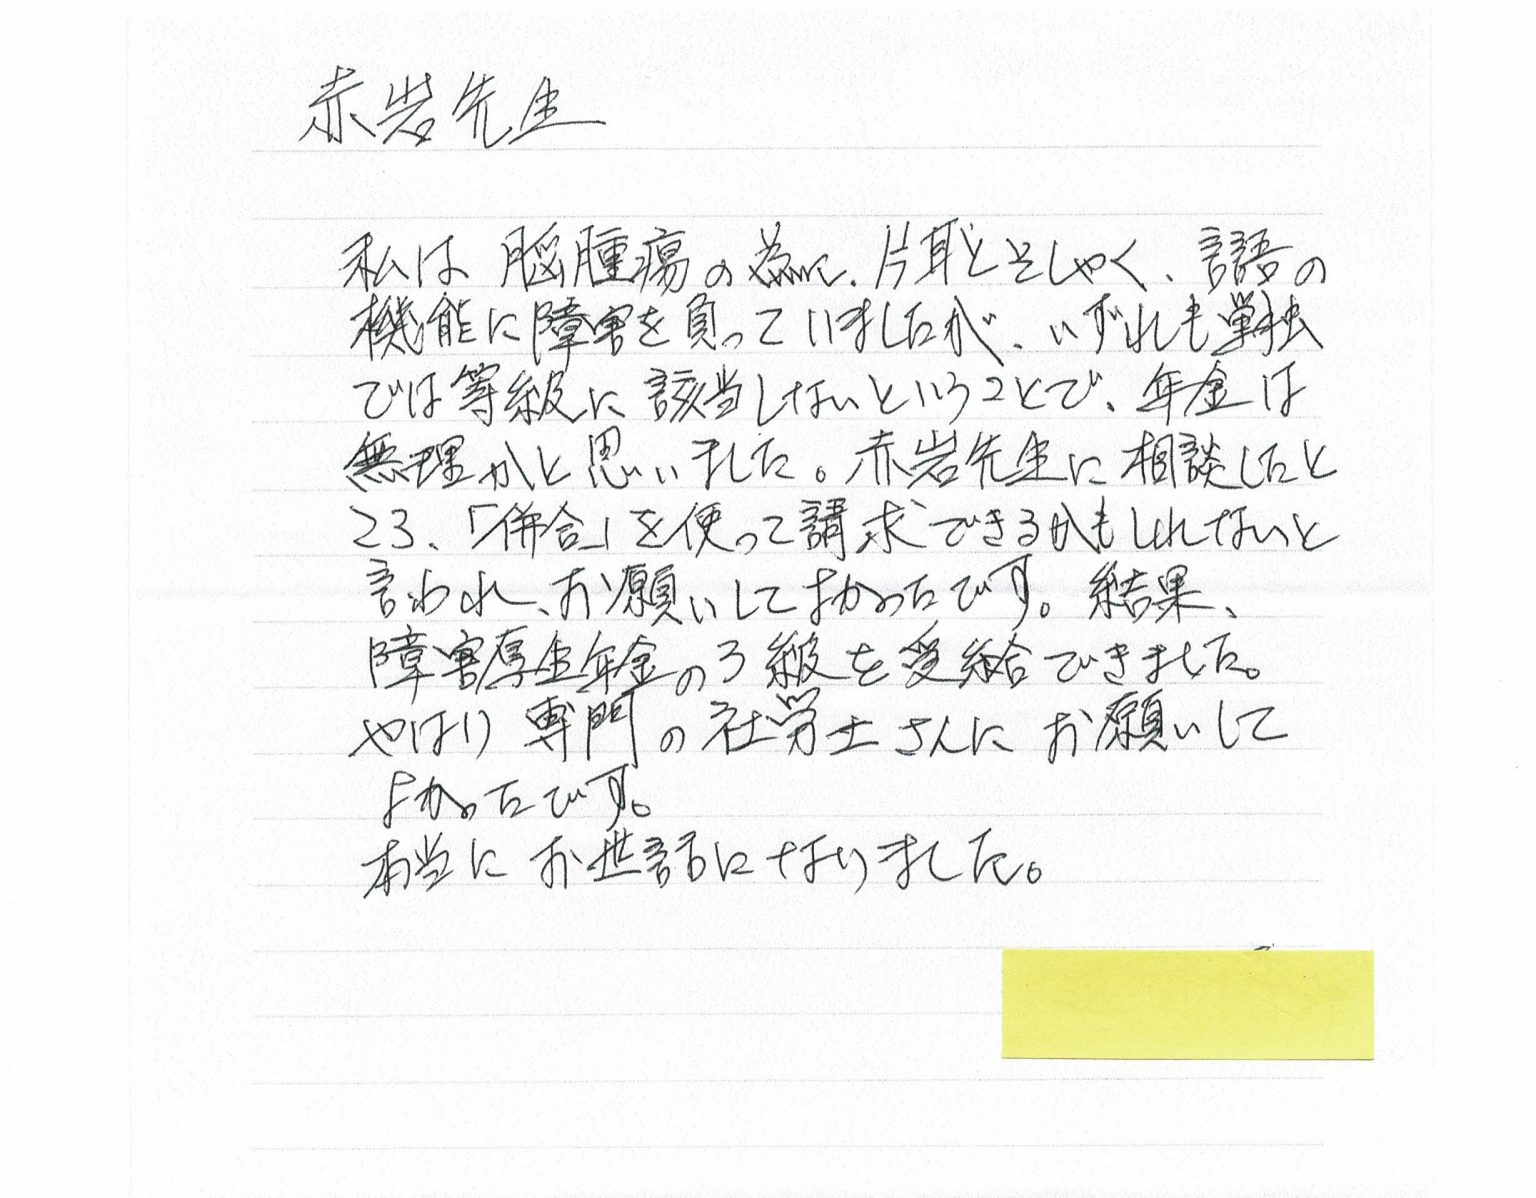 赤岩先生
私は脳腫瘍の為に、片耳とそしゃく、言語の
機能に障害を負っていましたが、いずれも単独
では等級に該当しないということで、年金は
無理かと思いました。赤岩先生に相談したと
ころ、「併合」を使って請求できるかもしれないと
言われ、お願いしてよかったです。結果、
障害厚生年金の3級を受給できました。
やはり専門の社労士さんにお願いして
よかったです。
本当にお世話になりました。